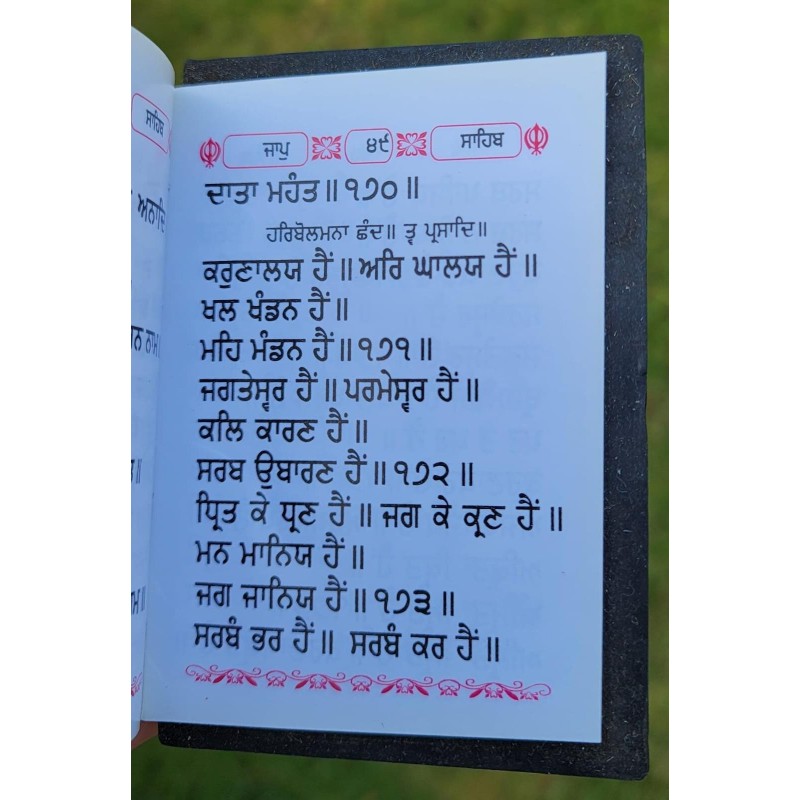 ਸਾਹਿਬ
ਅਨਾਦਿ
ਜਾਪੁ ੪੯ ਸਾਹਿਬ
ਦਾਤਾ ਮਹੰਤ ॥੧੭੦॥
ਹਰਿਬੋਲਮਨਾ ਛੰਦ॥ ਤ੍ਵ ਪ੍ਰਸਾਦਿ॥
ਕਰੁਣਾਲਯ ਹੈਂ ॥ ਅਰਿ ਘਾਲਯ ਹੈਂ ॥
ਖਲ ਖੰਡਨ ਹੈਂ ॥
ਮਹਿ ਮੰਡਨ ਹੈਂ ॥੧੭੧॥
ਜਗਤੇਸ੍ਵਰ ਹੈਂ ॥ ਪਰਮੇਸ੍ਵਰ ਹੈਂ ॥
ਕਲਿ ਕਾਰਣ ਹੈਂ ॥
ਸਰਬ ਉਬਾਰਣ ਹੈਂ ॥੧੭੨॥
ਧ੍ਰਿਤ ਕੇ ਧ੍ਰਣ ਹੈਂ ॥ ਜਗ ਕੇ ਕ੍ਰਣ ਹੈਂ ॥
ਮਨ ਮਾਨਿਯ ਹੈਂ ॥
ਜਗ ਜਾਨਿਯ ਹੈਂ ॥੧੭੩॥
ਸਰਬੰ ਭਰ ਹੈਂ ॥ ਸਰਬੰ ਕਰ ਹੈਂ ॥